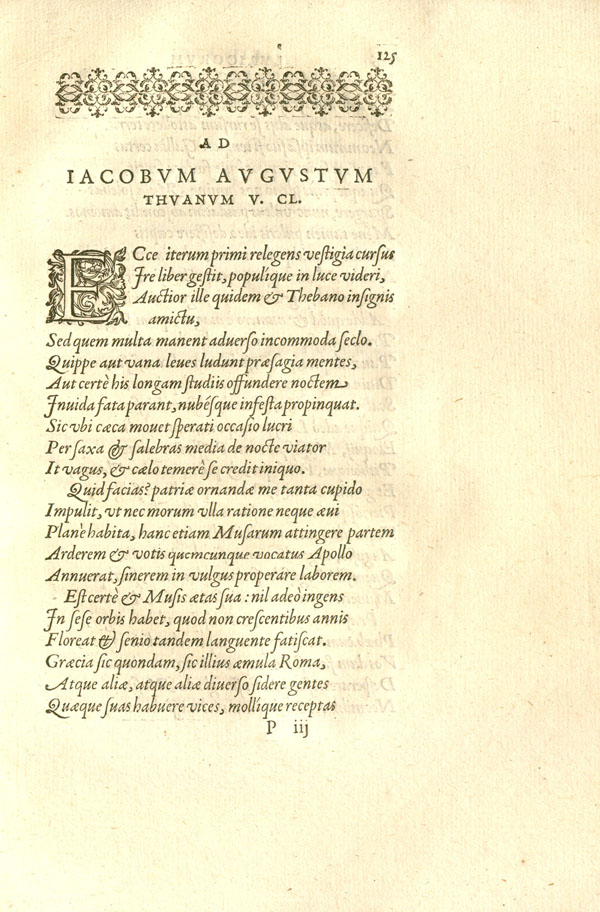 125
AD
IACOBVM AVGVSTVM
THVANVM V. CL.
ECce iterum primi relegens vestigia cursus
Ire liber gestit, populíque in luce videri,
Auctior ille quidem & Thebano insignis
amictu,
Sed quem multa manent adverso incommoda seclo.
Quippe aut vana leues ludunt præsagia mentes,
Aut certè his longam studiis offundere noctem
Inuida fata parant, nubésque infesta propinquat.
Sic vbi cæca mouet sperati occasio lucri
Per saxa & salebras media de nocte viator
It vagus, & cælo temerè se credit iniquo.
Quid facias? patriæ ornandæ me tanta cupido
Impulit, vt nec morum vlla ratione neque æui
Planè habita, hanc etiam Musarum attingere partem
Arderem & votis quemcunque vocatus Apollo
Annuerat, sinerem in vulgus properare laborem.
Est certè & Musis ætas sua : nil adeò ingens
In sese orbis habet, quod non crescentibus annis
Floreat & senio tandem languente fatiscat.
Græcia sic quondam, sic illius æmula Roma,
Atque aliæ, atque aliæ diverso sidere gentes
Quæque suas habuere vices, mollíque receptas
P iij